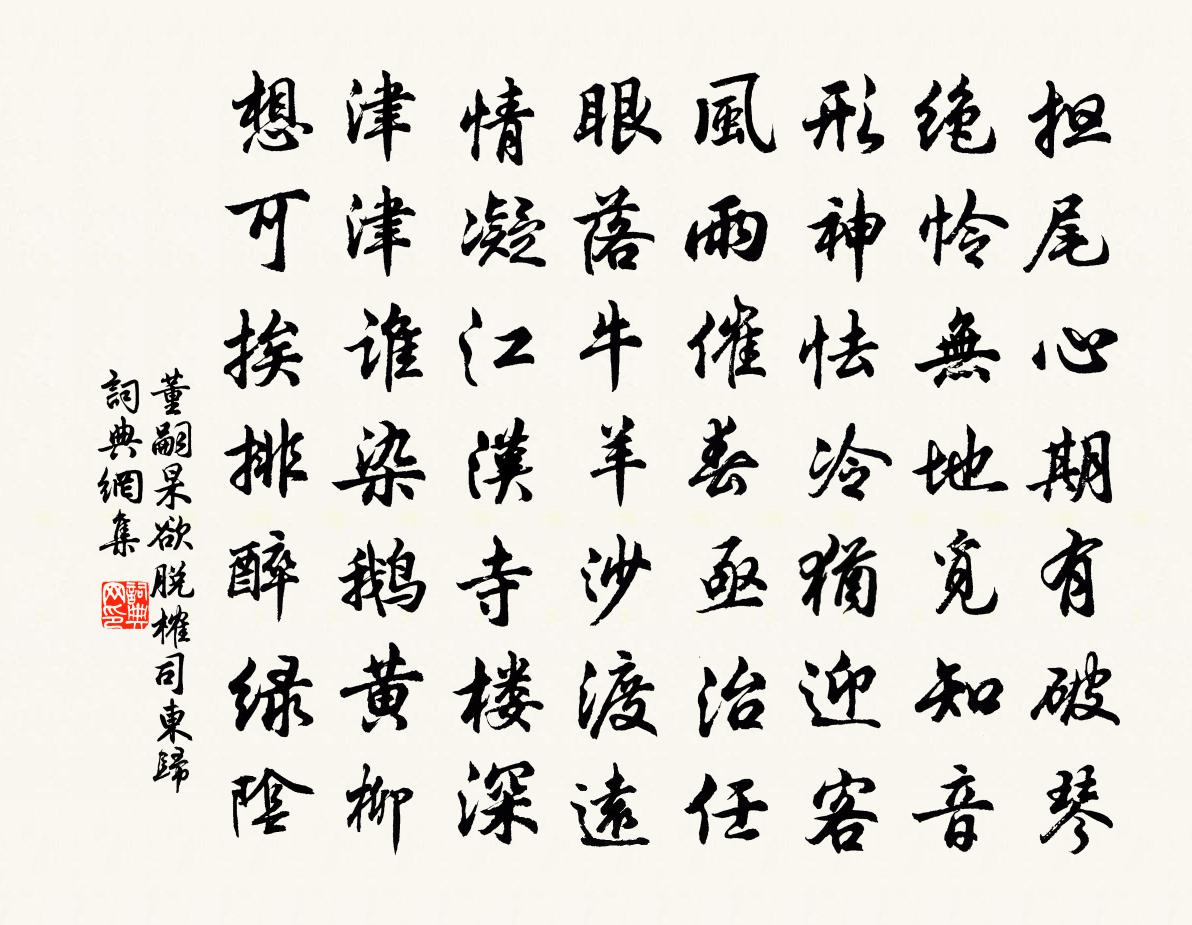 担尾心期有破琴
绝怜無地覓知音
形神怯冷猶迎客
風雨催春亟治任
眼落牛羊沙渡遠
情凝江漢寺楼深
津津誰染鵝黄柳
想可挨排醉绿陰
董嗣杲欲脱榷司東歸
詞典網集
詞典网印